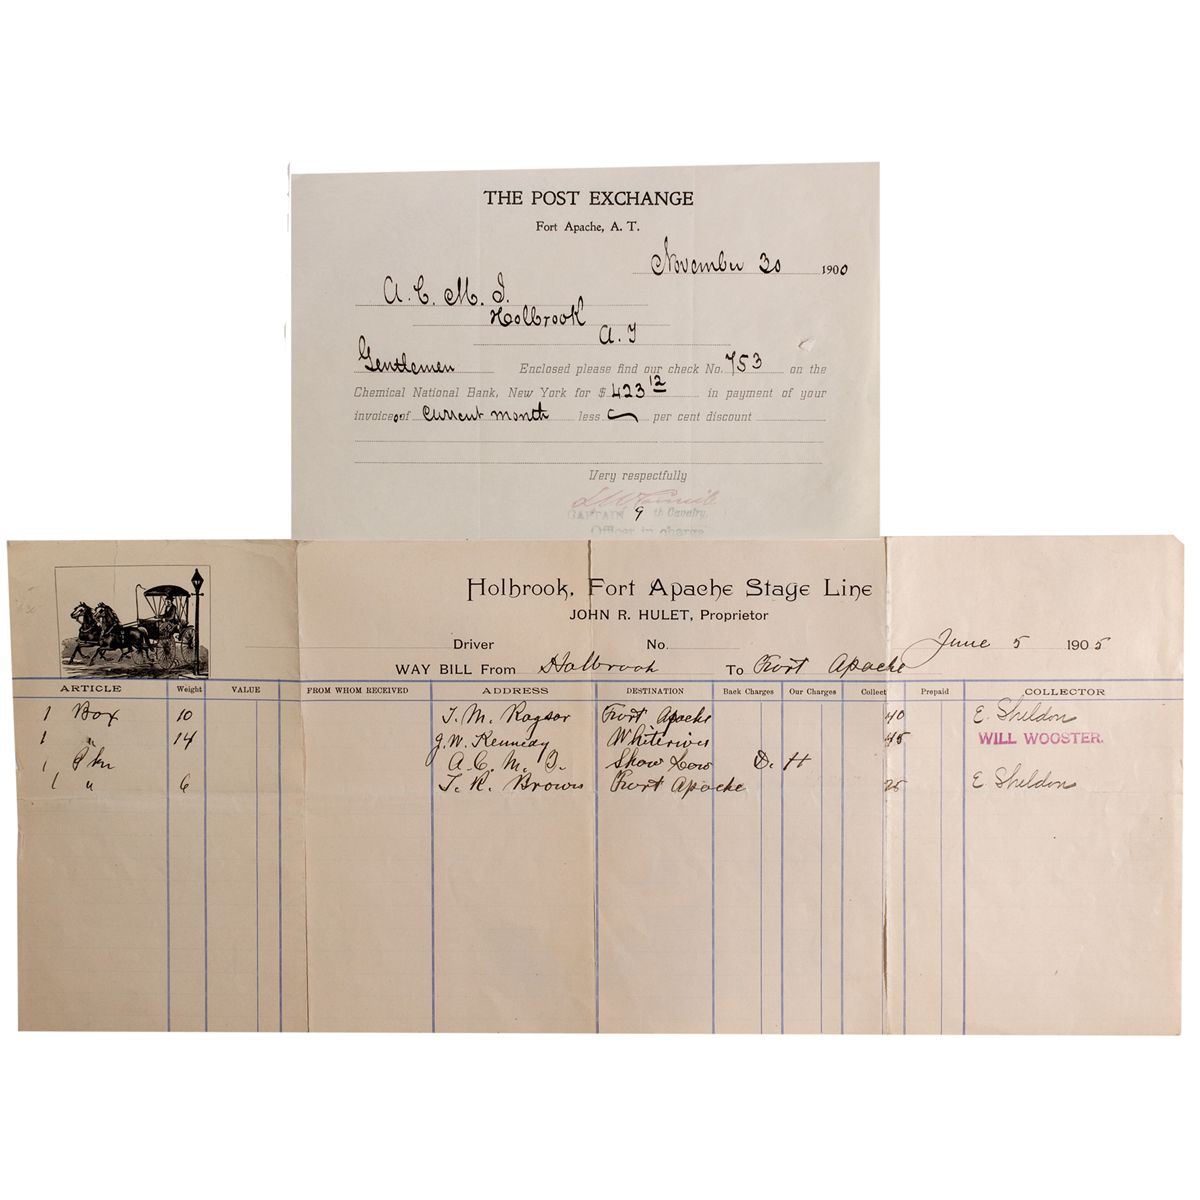 THE POST EXCHANGE
Fort Apache, A. T.
November 30 1900
A. C. M. I.
Holbrook
A. T
Gentlemen Enclosed please find our check No. 753 on the
Chemical National Bank, New York for $ 423 12 in payment of your
invoice of Current month less per cent discount
Very respectfully
CAPTAIN 9 th Cavalry,
Officer in charge
Holbrook, Fort Apache Stage Line
JOHN R. HULET, Proprietor
Driver No. June 5 1905
WAY BILL From Holbrook To Fort Apache
ARTICLE Weight VALUE FROM WHOM RECEIVED ADDRESS DESTINATION Back Charges Our Charges Collect Prepaid COLLECTOR
1 Box 10 Fort Apache 40 E. Sheldon
1 " 14 J. W. Kennedy Whiteriver 45 WILL WOOSTER.
1 Pkg A. C. M. I. Show Low D. H
1 " 6 T. R. Brown Fort Apache 25 E Sheldon